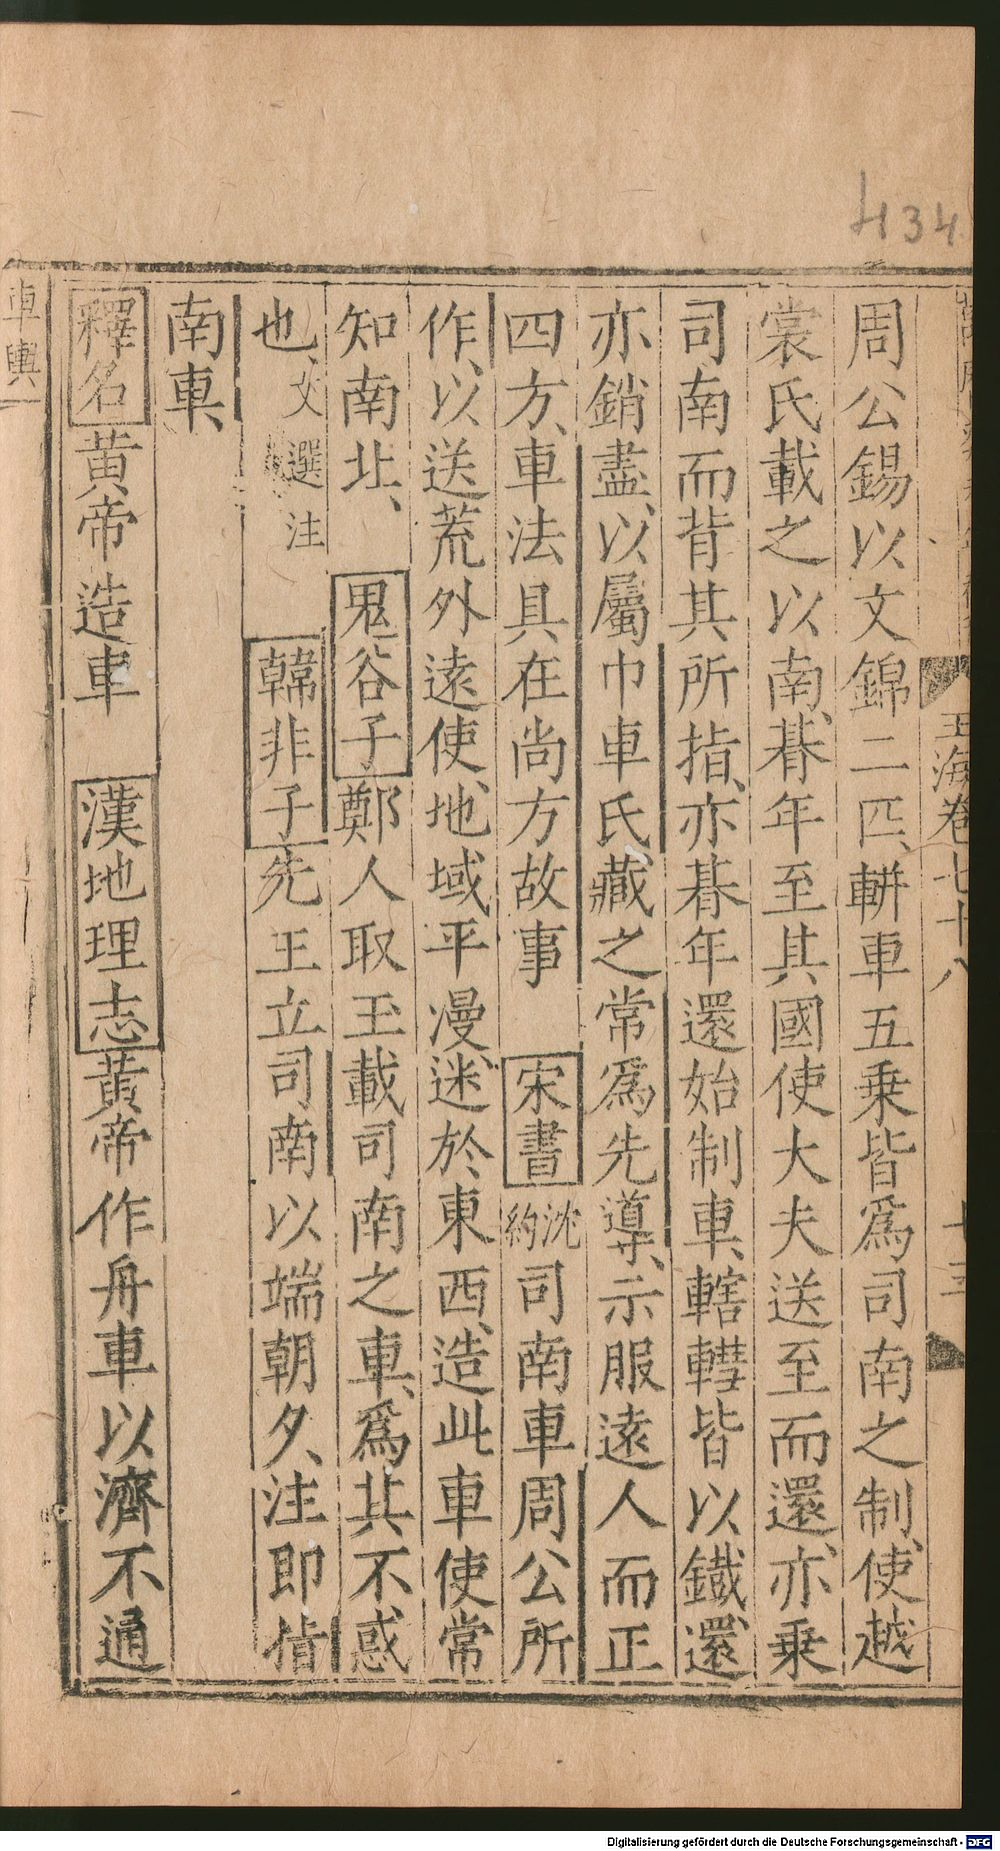 434
玉海卷七十八
周公錫以文錦二匹、輧車五乘皆爲司南之制、使越
裳氏載之以南、朞年至其國使大夫送至而還、亦乘
司南而背其所指、亦朞年還始制車、轄轊皆以鐵、還、
亦銷盡、以屬巾車氏、藏之常爲先導、示服遠人而正
四方、車法具在尚方故事 宋書 沈約 司南車周公所
作、以送荒外遠使、地域平漫、迷於東西、造此車使常
知南北、 鬼谷子鄭人取玉載司南之車、爲其不惑
也、文選注 韓非子先王立司南以端朝夕、注即指
南車、
釋名黃帝造車 漢地理志黃帝作舟車以濟不通
車輿
Digitalisierung gefördert durch die Deutsche Forschungsgemeinschaft - DFG